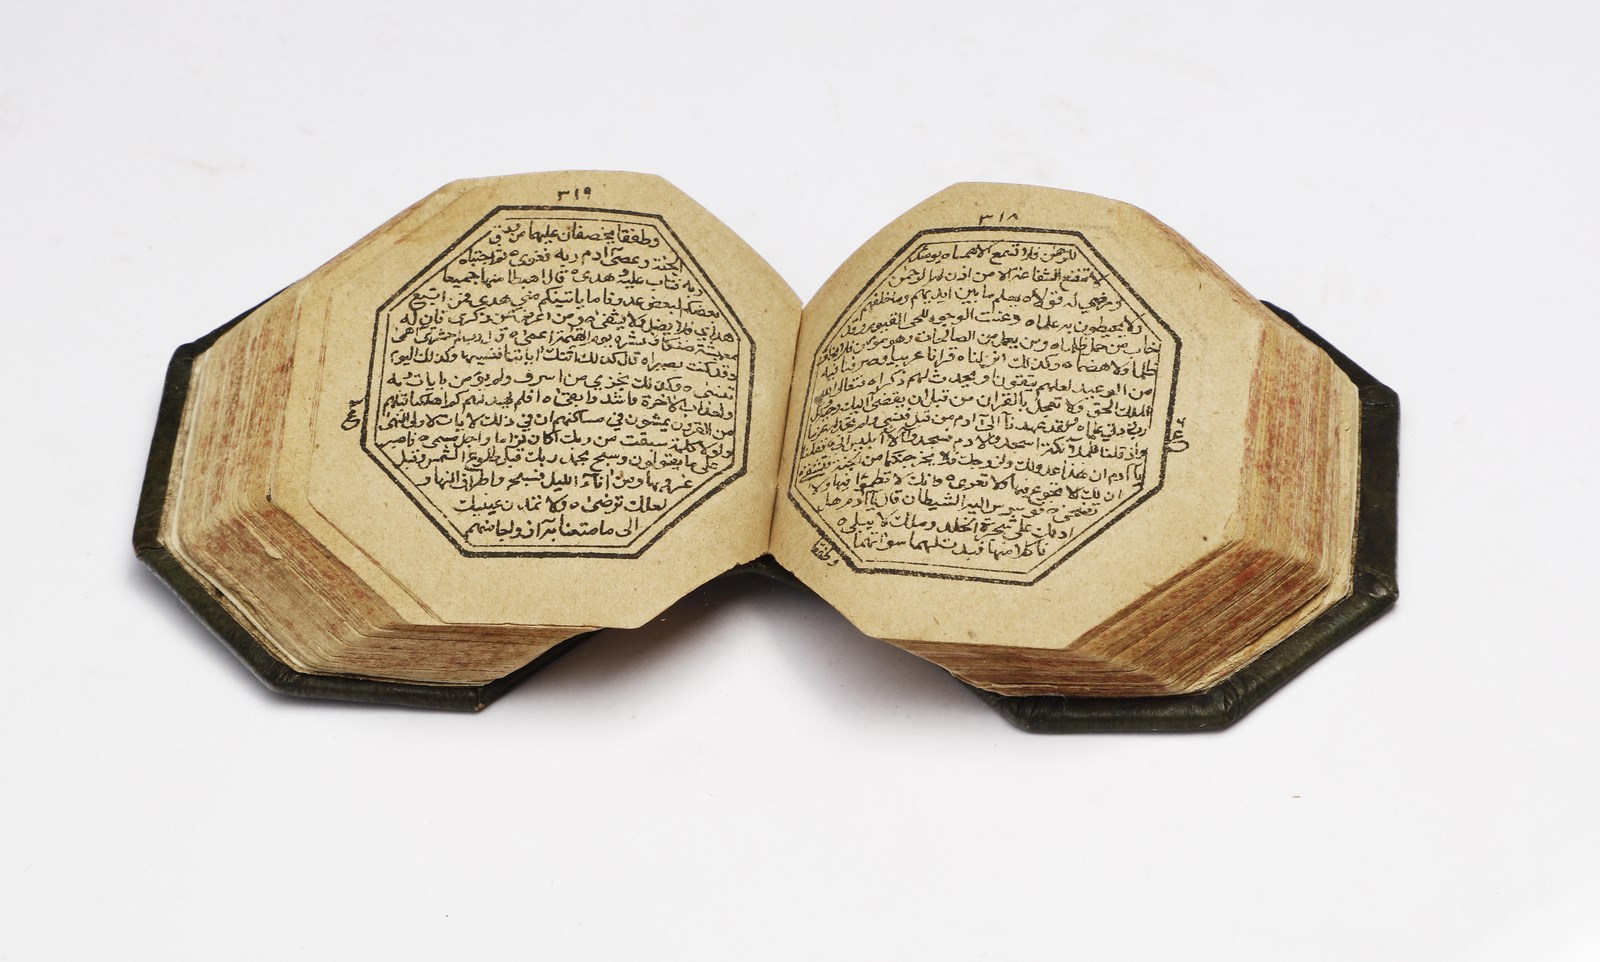 ٣١٨
للرحمن فلا تسمع الا همسا ه يومئذ
لا تنفع الشفاعة الا من اذن له الرحمن
ورضي له قولا ه يعلم ما بين ايديهم وما خلفهم
ولا يحيطون به علما ه وعنت الوجوه للحي القيوم وقد
خاب من حمل ظلما ه ومن يعمل من الصالحات وهو مؤمن فلا يخاف
ظلما ولا هضما ه وكذلك انزلناه قرانا عربيا وصرفنا فيه
من الوعيد لعلهم يتقون او يحدث لهم ذكرا ه فتعالى الله
الملك الحق ولا تعجل بالقران من قبل ان يقضى اليك وحيه وقل
رب زدني علما ه ولقد عهدنا الى ادم من قبل فنسي ولم نجد له عزما
واذ قلنا للملائكة اسجدوا لادم فسجدوا الا ابليس ابى ه فقلنا
يا ادم ان هذا عدو لك ولزوجك فلا يخرجنكما من الجنة فتشقى
ان لك الا تجوع فيها ولا تعرى ه وانك لا تظمؤا فيها ولا
تضحى ه فوسوس اليه الشيطان قال يا ادم هل
ادلك على شجرة الخلد وملك لا يبلى ه
فاكلا منها فبدت لهما سواتهما
وطفقا
٣١٩
وطفقا يخصفان عليهما من ورق
الجنة وعصى ادم ربه فغوى ه ثم اجتباه
ربه فتاب عليه وهدى ه قال اهبطا منها جميعا
بعضكم لبعض عدو فاما ياتينكم مني هدى فمن اتبع
هداي فلا يضل ولا يشقى ه ومن اعرض عن ذكري فان له
معيشة ضنكا ونحشره يوم القيمة اعمى ه قال رب لم حشرتني اعمى
وقد كنت بصيرا ه قال كذلك اتتك اياتنا فنسيتها وكذلك اليوم
تنسى ه وكذلك نجزي من اسرف ولم يؤمن بايات ربه
ولعذاب الاخرة اشد وابقى ه افلم يهد لهم كم اهلكنا قبلهم
من القرون يمشون في مساكنهم ان في ذلك لايات لاولي النهى
ولولا كلمة سبقت من ربك لكان لزاما واجل مسمى ه فاصبر
على ما يقولون وسبح بحمد ربك قبل طلوع الشمس وقبل
غروبها ومن اناء الليل فسبح واطراف النهار
لعلك ترضى ه ولا تمدن عينيك
الى ما متعنا به ازواجا منهم